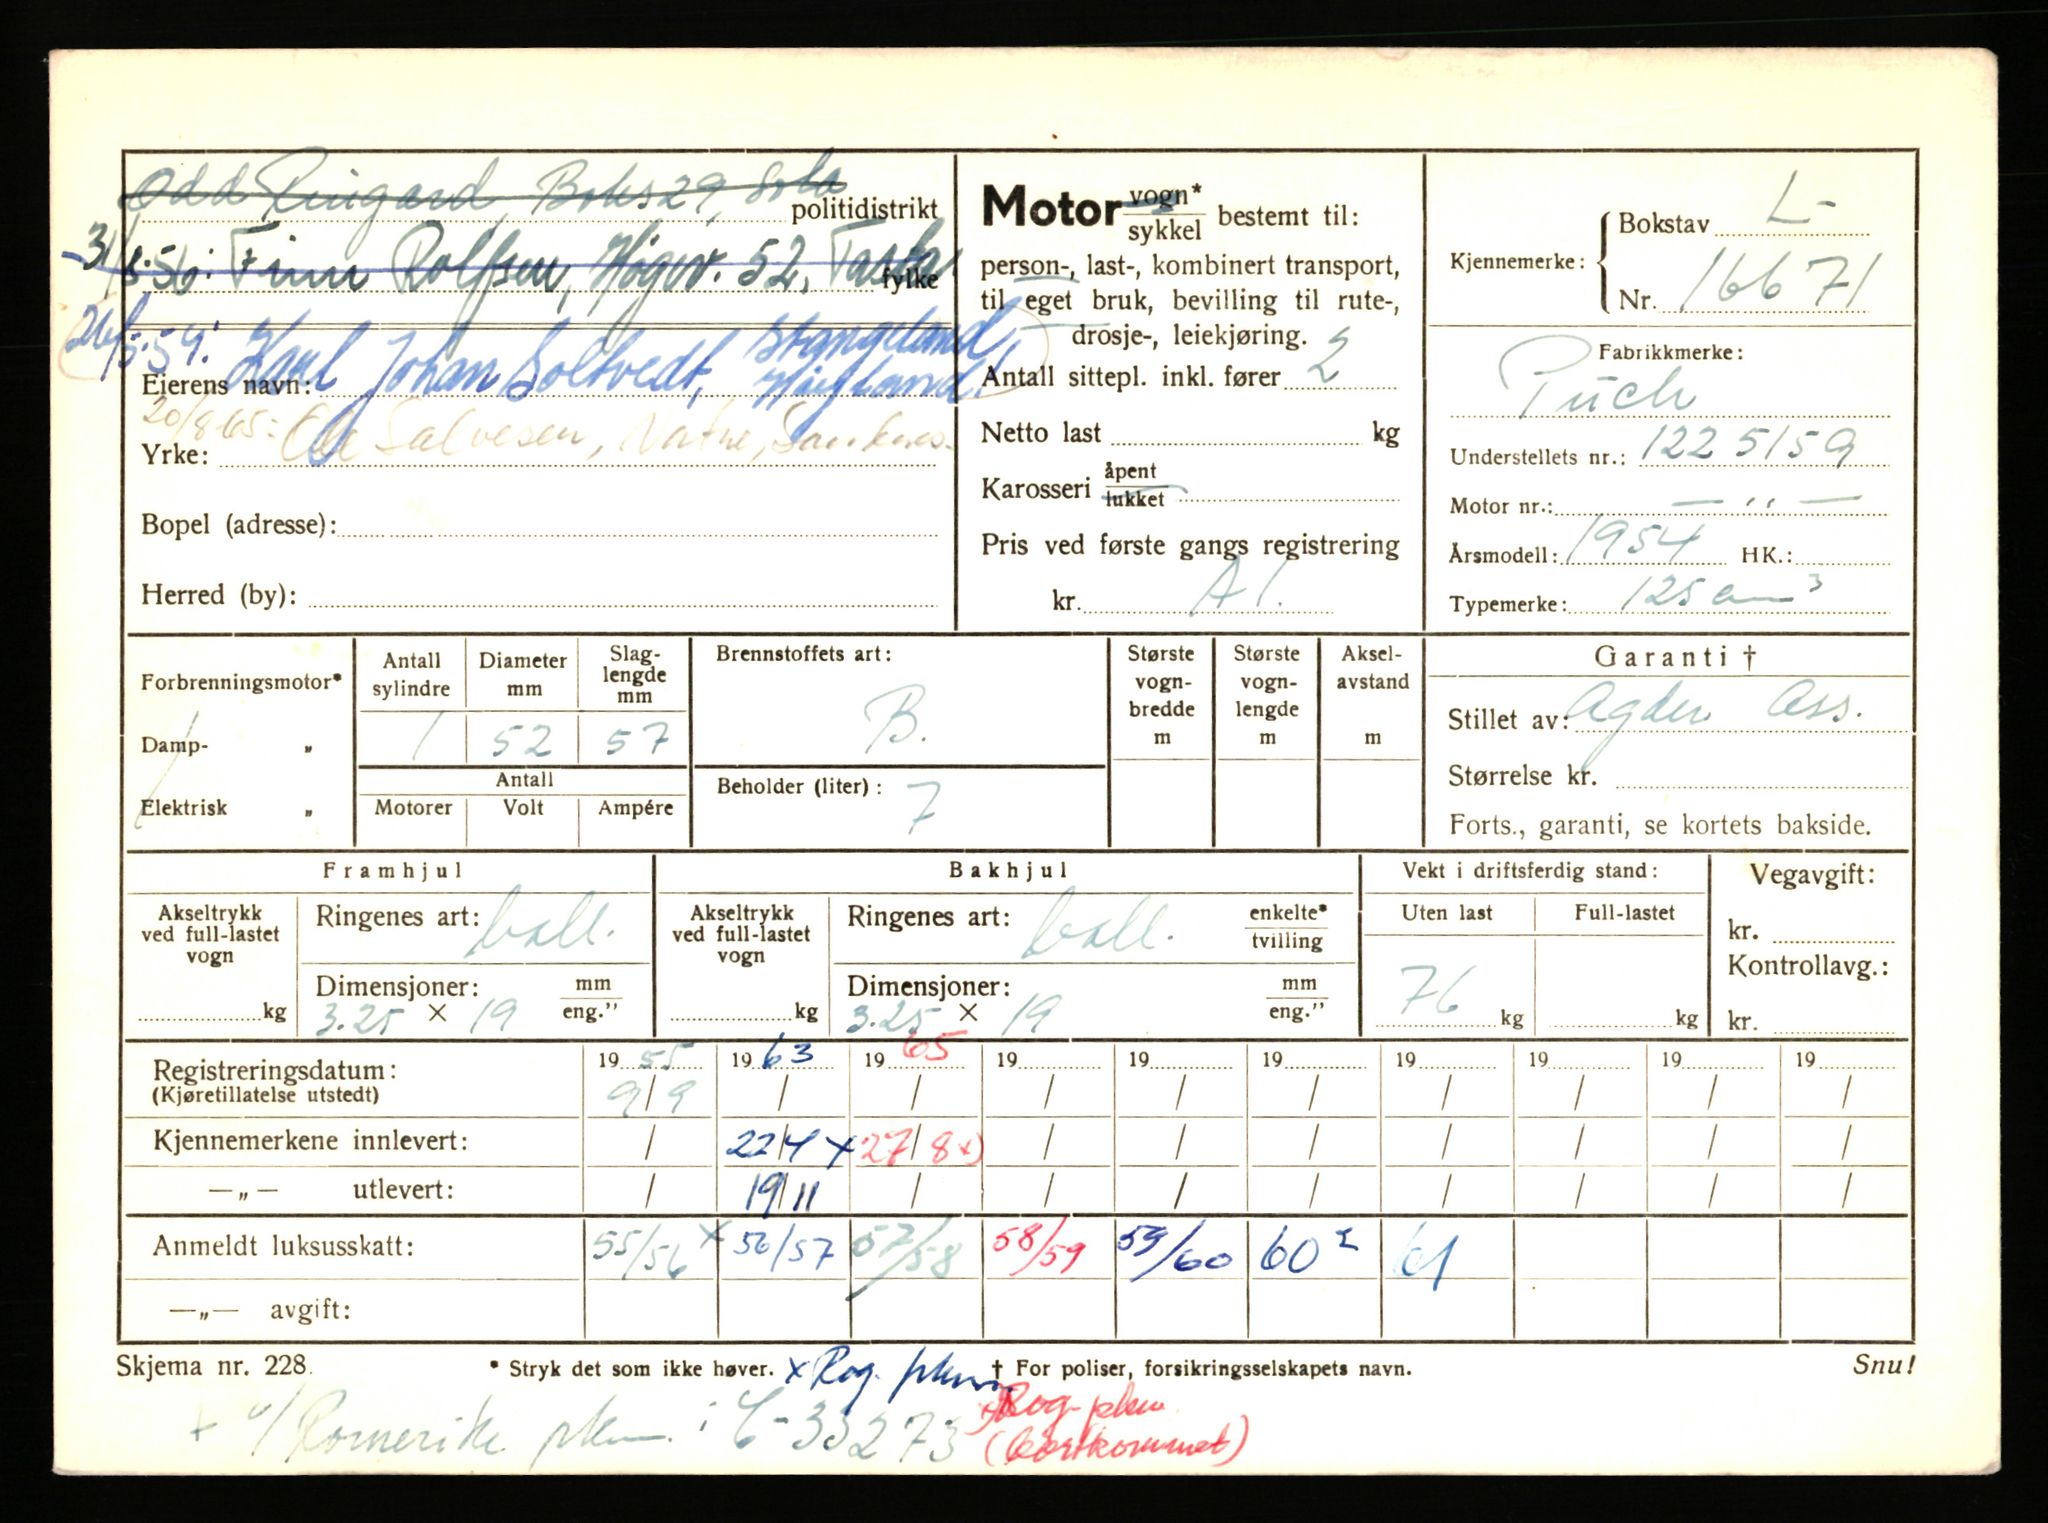 Odd Ringard, Boks 29, Sola
politidistrikt
31/5-56: Finn Rolfsen, Høgev. 52, Tasta
fylke
26/5-59: Karl Johan Soltvedt, Stangeland
Eierens navn:
20/8-65: Ole Salvesen, Vatne, Sandnes
Yrke:
Bopel (adresse):
Herred (by):
Motor vogn* sykkel bestemt til:
person-, last-, kombinert transport,
til eget bruk, bevilling til rute-,
drosje-, leiekjøring.
Antall sittepl. inkl. fører 2
Netto last kg
Karosseri åpent lukket
Pris ved første gangs registrering
kr. A 1.
Kjennemerke: Bokstav L-
Nr. 16671
Fabrikkmerke:
Puch
Understellets nr.: 1225159
Motor nr.: — ,, —
Årsmodell: 1954 HK.:
Typemerke: 125 cm³
Forbrenningsmotor*
Damp- „
Elektrisk „
Antall sylindre 1
Diameter mm 52
Slaglengde mm 57
Antall
Motorer Volt Ampére
Brennstoffets art:
B.
Beholder (liter): 7
Største vognbredde m
Største vognlengde m
Akselavstand m
Garanti †
Stillet av: Agder Ass.
Størrelse kr.
Forts., garanti, se kortets bakside.
Framhjul
Akseltrykk ved full-lastet vogn kg
Ringenes art: ball.
Dimensjoner: mm eng."
3.25 × 19
Bakhjul
Akseltrykk ved full-lastet vogn kg
Ringenes art: ball. enkelte* tvilling
Dimensjoner: mm eng."
3.25 × 19
Vekt i driftsferdig stand:
Uten last Full-lastet
76 kg kg
Vegavgift:
kr.
Kontrollavg.:
kr.
Registreringsdatum: 19 55 19 63 19 65 19 19 19 19 19 19 19
(Kjøretillatelse utstedt) 9/9 / / / / / / / / /
Kjennemerkene innlevert: / 22/4 x 27/8 x) / / / / / / /
—„— utlevert: / 19/11 / / / / / / / /
Anmeldt luksusskatt: 55/56 x 56/57 57/58 58/59 59/60 60² 61
—„— avgift:
Skjema nr. 228. * Stryk det som ikke høver. x Rog. pkm † For poliser, forsikringsselskapets navn. Snu!
+ t/ Romerike pkm. i C-33273 x) Rog. pkm
(bortkommet)